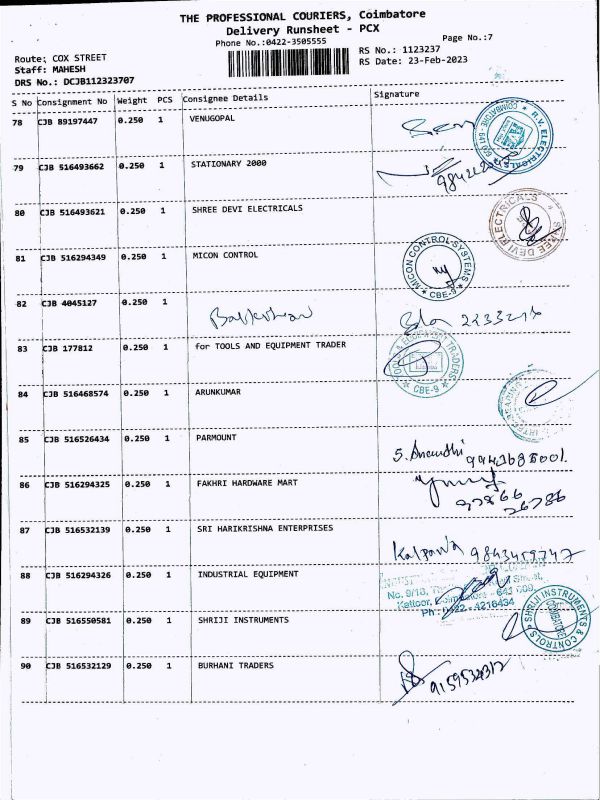 THE PROFESSIONAL COURIERS, Coimbatore
Delivery Runsheet - PCX
Phone No.:0422-3505555
Page No.:7
Route: COX STREET
RS No.: 1123237
Staff: MAHESH
RS Date: 23-Feb-2023
DRS No.: DCJB112323707
S No Consignment No Weight PCS Consignee Details Signature
78 CJB B9197447 0.250 1 VENUGOPAL
COIMBATORE - 641 R.V. ELECTRICALS
79 CJB 516493662 0.250 1 STATIONARY 2000
80 CJB 516493621 0.250 1 SHREE DEVI ELECTRICALS
SHREE DEVI ELECTRICALS
81 CJB 516294349 0.250 1 MICON CONTROL
MICON CONTROL SYSTEMS
CBE-9
82 CJB 4045127 0.250 1
83 CJB 177812 0.250 1 for TOOLS AND EQUIPMENT TRADER
& EQUIPMENT TRADERS
CBE-9
84 CJB 516468574 0.250 1 ARUNKUMAR
85 CJB 516526434 0.250 1 PARMOUNT
S.
86 CJB 516294325 0.250 1 FAKHRI HARDWARE MART
97866
26786
87 CJB 516532139 0.250 1 SRI HARIKRISHNA ENTERPRISES
Kalpana 9843459747
88 CJB 516294326 0.250 1 INDUSTRIAL EQUIPMENT
No. 9/13, Street,
Kattoor, Coimbatore - 641 009.
Ph: 0422 - 4216434
89 CJB 516550581 0.250 1 SHRIJI INSTRUMENTS
SHRIJI INSTRUMENTS & CONTROLS
COIMBATORE
90 CJB 516532129 0.250 1 BURHANI TRADERS